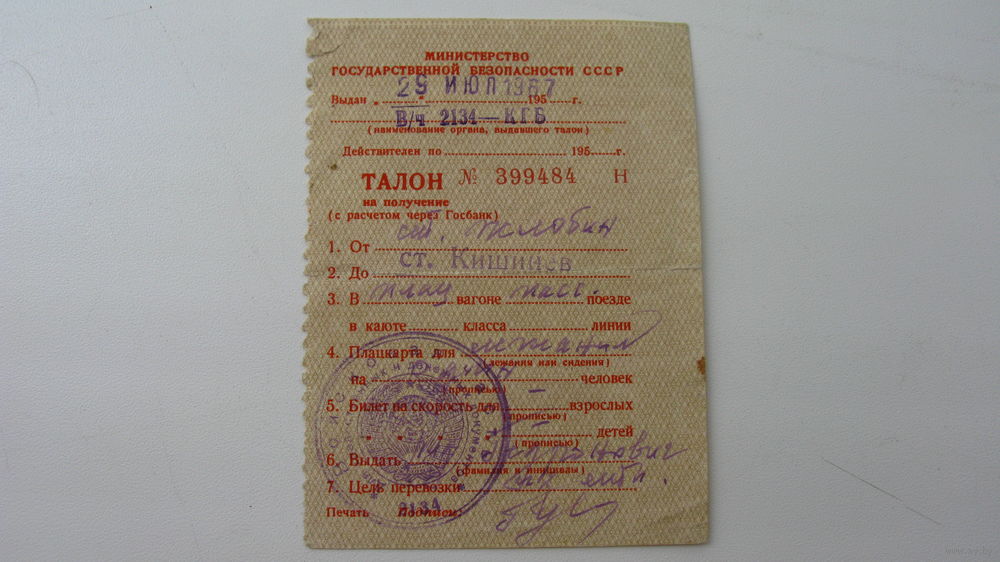 МИНИСТЕРСТВО
ГОСУДАРСТВЕННОЙ БЕЗОПАСНОСТИ СССР
29 ИЮЛ 1967
Выдан " " 195 г.
В/ч 2134 — КГБ
(наименование органа, выдавшего талон)
Действителен по 195 г.
ТАЛОН № 399484 Н
на получение
(с расчетом через Госбанк)
1. От ст. Жлобин
2. До ст. Кишинев
3. В плац вагоне пасс. поезде
в каюте класса линии
4. Плацкарта для лежания
(лежания или сидения)
на один человек
(прописью)
5. Билет на скорость для — взрослых
(прописью)
— детей
(прописью)
6. Выдать
(фамилия и инициалы)
7. Цель перевозки
Печать Подписи:
2134